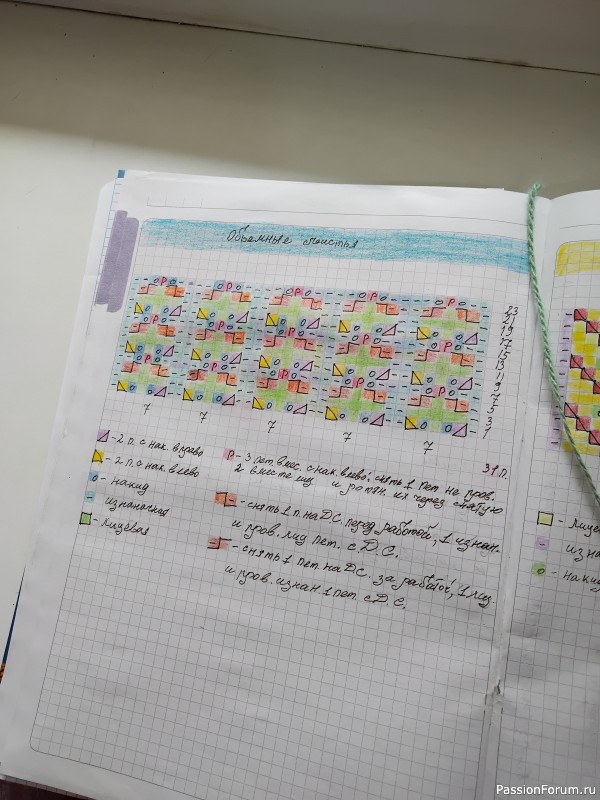 Объемные листья
23
21
19
17
15
13
11
9
7
5
3
1
7 7 7 7 7
31п.
- 2 п. с нак. вправо
- 2 п. с нак. влево
- накид
- изнаночная
- лицевая
Р - 3 пет. вмес. с нак. влево: снять 1 пет. не пров.
2 вместе лиц и протян. их через снятую
- снять 1 п. на ДС. перед работой, 1 изнан.
и пров. лиц пет. с Д.С.
- снять 1 пет. на ДС. за работой, 1 лиц.
и пров. изнан. 1 пет. с Д.С.
- лицев
- изна
- накид
PassionForum.ru